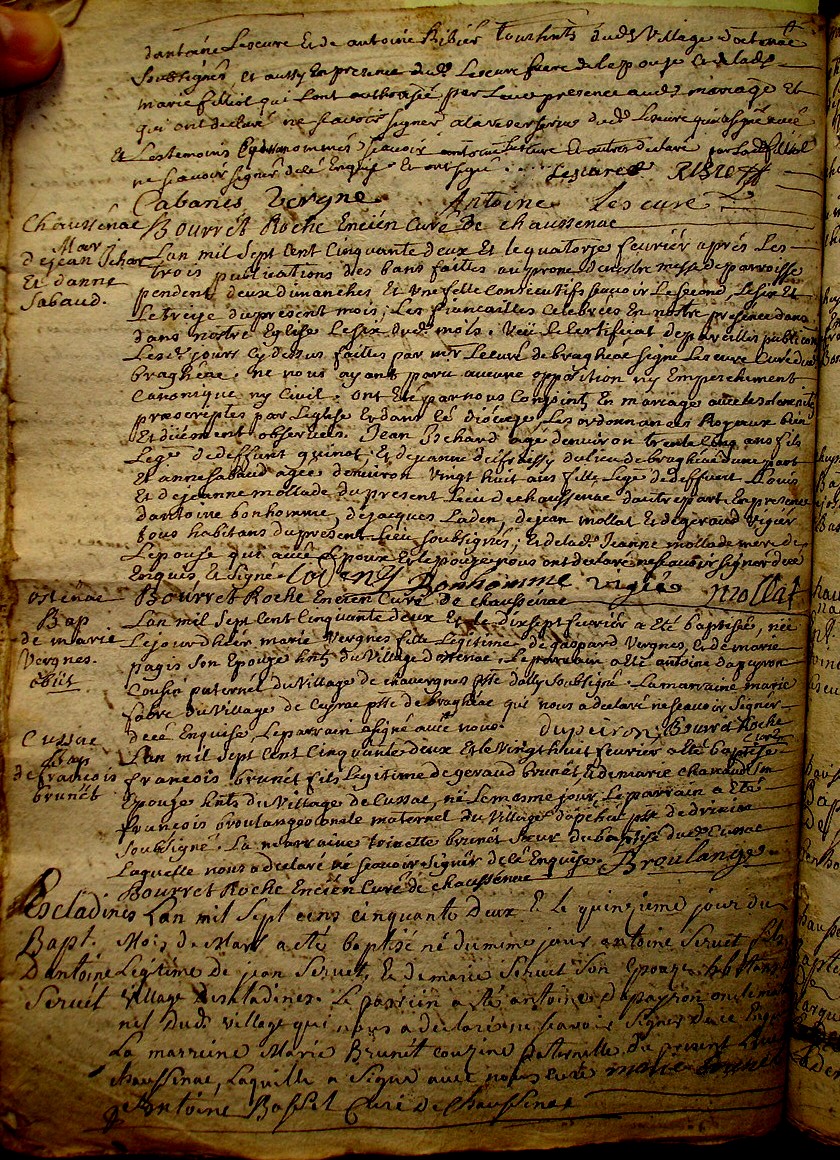 dantoine Lescure Et de antoine Ribier tous hnts dud. Village doctenac
Soubsignés, et aussy En presence dud. Lescure frere de Lepouse Et de lad.
marie filliol qui l'ont authorisée par Leur presence aud. mariage Et
qui ont declaré ne scavoir signer a la reserve dud. Lescure qui a signé avec
Et Les temoins cy dessus nommés scavoir antoine Lescure Et autres declaré par Lad. filliol
ne scavoir signer de ce Enquise Et ont signé. Lescure RIBIER
Cabanes Vergne Antoine Lescure
Bourret Roche Encien Curé de chaussenac
Chaussenac
Mar.
de jean Ichar
Et danne
Sabaud.
Lan mil Sept Cent Cinquante deux Et le quatorze fevrier aprés Les
trois publications des bans faites au prone de nostre messe de paroisse
pendent deux dimanches Et Une feste Consecutifs scavoir Le second, Le six Et
Le treize du present mois; Les fiancailles Celebrées En nostre presence dans
dans nostre Eglise Le six dud. mois. Veü Le Certificat de pareilles publicaons
Les d. jours cy dessus faites par mr. Le Curé de bragheac signé Lescure Curé de
bragheac. Ne nous ayant paru aucune opposition ny Empechement
Canonique ny Civil. ont Eté par nous Conjoints En mariage avec les solemnités
præscriptes par Leglise Et dans le diocege, Les ordonnances Royaux bien
Et düement observées. Jean Ichard agé denviron trente cinq ans fils
Lege. de deffunt guinot Et de jeanne du lieu de bragheac dune part
Et anne Sabaud agée denviron vingt huit ans fille Lege. de deffunt Louis
Et de jeanne mollade du present Lieu de chaussenac dautre part En presence
dantoine bonhomme, de jacques Laden, de jean mollat Et de geraud vigier
tous habitans du present Lieu soubsignés, Et de lad. Jeanne mollade mere de
Lepouse qui avec Lepoux Et Lepouse nous ont declaré ne scavoir signer de ce
Enquis, Et signé Bonhomme vigié mollat
Bourret Roche Encien Curé de chaussenac
doctenac
Bap
de marie
Vergnes.
obiit
Lan mil Sept Cent Cinquante deux Et le dixsept fevrier a Eté baptisée, née
Le jourdhuier marie Vergnes fille Legitime de gaspard Vergnes, Et de marie
pagis son Epouse hnts du Village doctenac. Le parrain a Eté antoine dapeyron
Cousin paternel du Village de chavergnes psse dally soubsigné. La marraine marie
fabre du Village de Ceyrac psse de bragheac qui nous a declaré ne scavoir signer
de ce Enquise. Le parrain a signé avec nous. dupeiron Bourret Roche
Curé
Cussac
Bap
de francois
brunet
Lan mil Sept Cent Cinquante deux Et le Vingt huit fevrier a Eté baptisé
francois brunet fils Legitime de geraud brunet Et de marie chavaud son
Epouse hnts du Village de Cussac, né Le meme jour, Le parrain a Eté
francois broulange oncle maternel du Village dapchier psse de
soubsigné. La marraine toinette brunet sœur du baptisé dud. Cussac
Laquelle nous a declaré ne scavoir signer de ce Enquise. Broulange
Bourret Roche Encien Curé de chaussenac
Escladines
Bapt.
Dantoine
Servet
Lan mil Sept cens cinquante Deux E le quinzieme jour du
Mois de Mars a eté baptisé né du mime jour antoine Servet fils
Legitime de jean Servet, E de marie Servet son epouze habitans
village descladines. Le parrein a eté antoine dapayron oncle mater
nel dud. village qui nous a declaré ne scavoir signer de ce Enquis
La marreine Marie Brunet couzine paternelle du present Lieu
chaussinac, Laquille a signé avec nous curé marie brunet
Antoine Basset Curé de Chaussinac